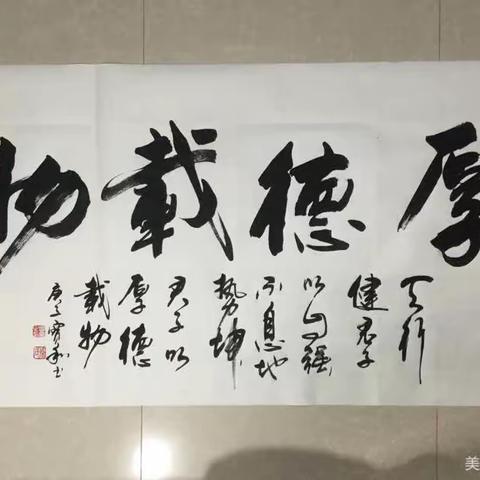 厚德載物
天行
健君子
以自强
不息地
勢坤
君子以
厚德
載物
庚子
美